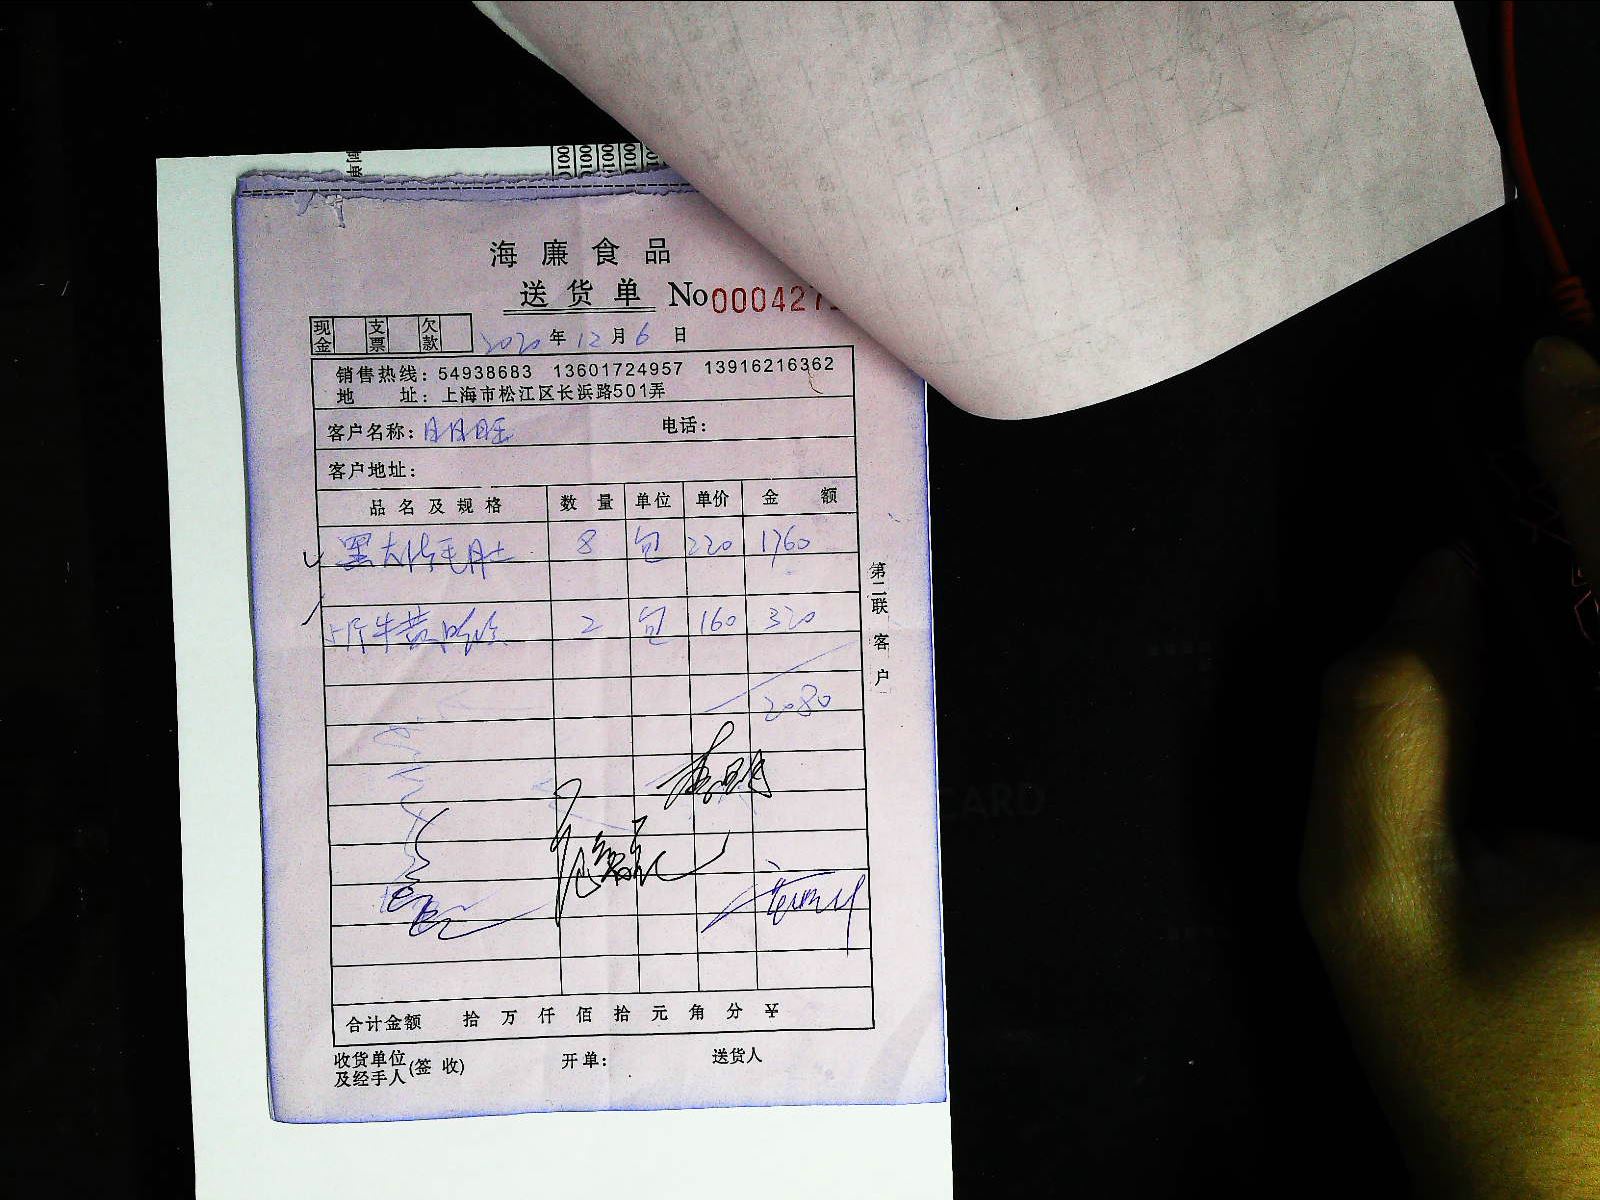 海廉食品
送货单 No 000427
现金 支票 欠款 2020年12月6日
销售热线：54938683 13601724957 13916216362
地 址：上海市松江区长浜路501弄
客户名称：月月旺 电话：
客户地址：
品名及规格 数量 单位 单价 金额
8 包 220 1760
2 包 160 320
2080
第二联 客户
合计金额 拾 万 仟 佰 拾 元 角 分 ￥
收货单位及经手人(签收) 开单： 送货人